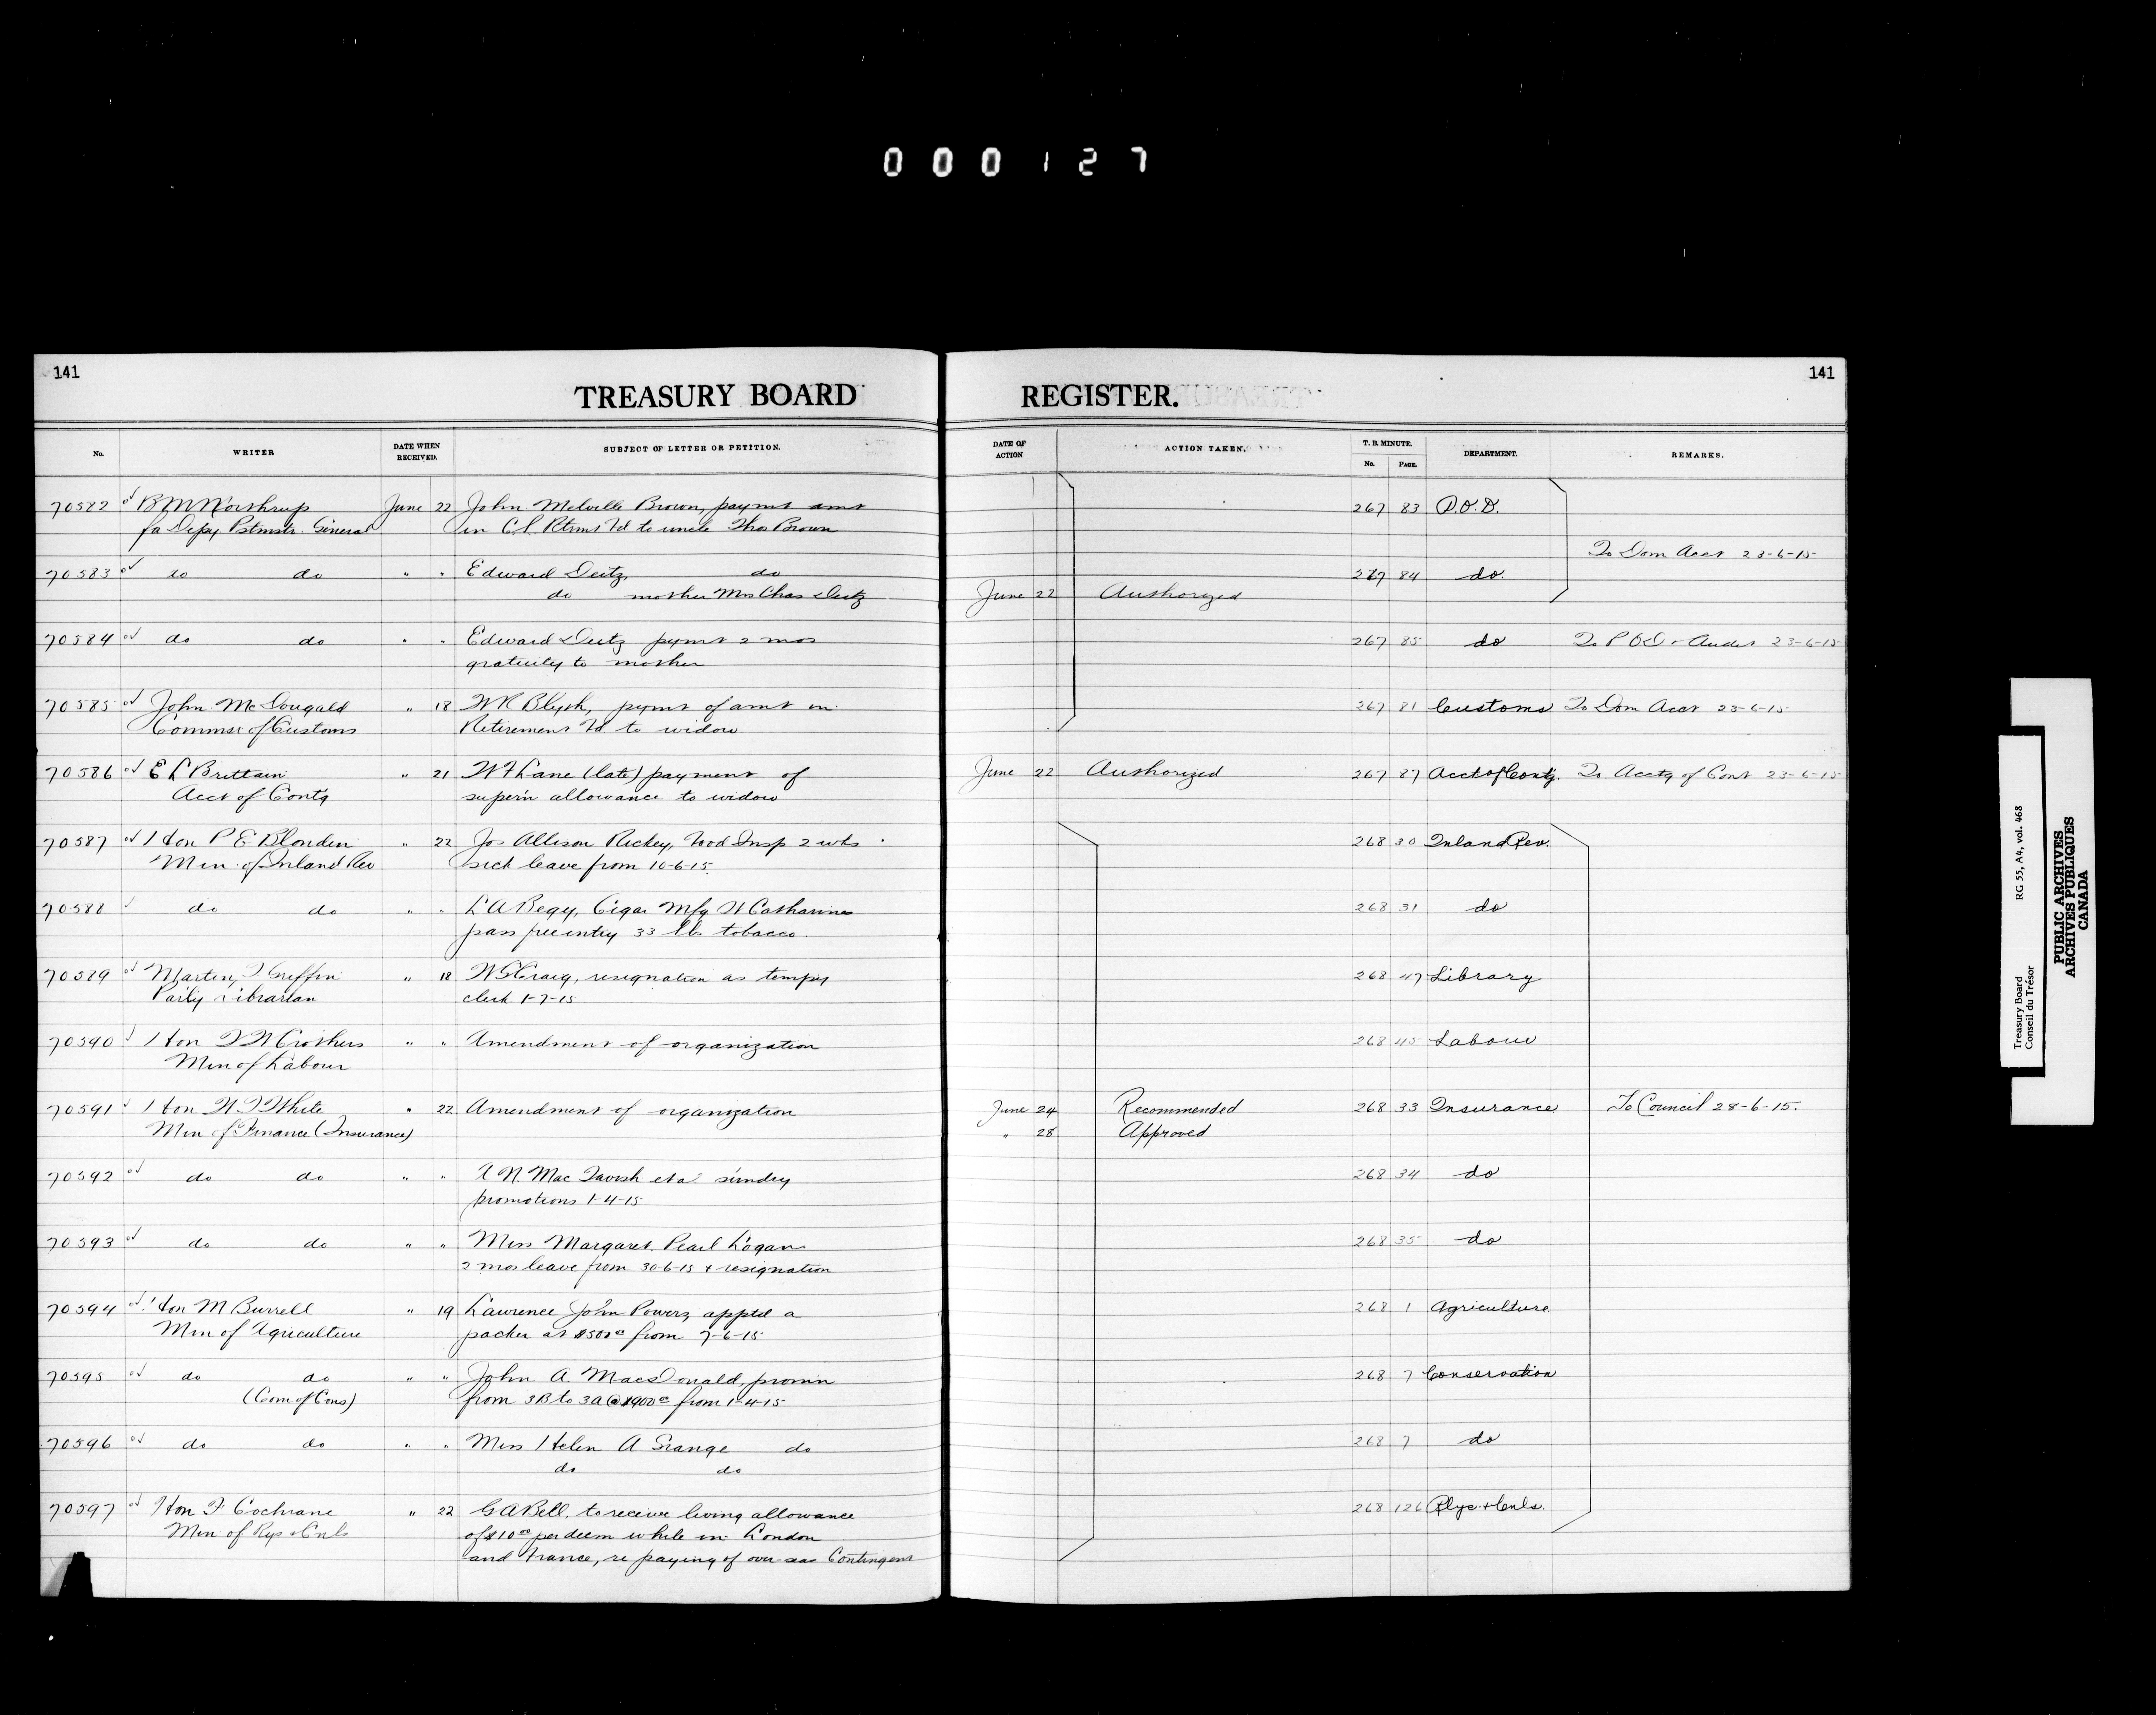 000127
141
TREASURY BOARD
REGISTER.
141
No.
WRITER
DATE WHEN RECEIVED.
SUBJECT OF LETTER OR PETITION.
DATE OF ACTION
ACTION TAKEN.
T. B. MINUTE.
No. PAGE.
DEPARTMENT.
REMARKS.
70582 June 22 John Melville Brown, paymt amt 267 83 P.O.D.
fa Depy Pstmstr General in C.S. Rtrmt Fd to uncle Thos Brown
To Dom Acct 23-6-15
70583 do do " " Edward Deitz, do 267 84 do.
do mother Mrs Chas Deitz June 22 Authorized
70584 do do " " Edward Deitz pymt 2 mos 267 85 do To P O D 23-6-15
gratuity to mother
70585 John McDougald " 18 pymt of amt in 267 81 Customs To Dom Acct 23-6-15
Commsr of Customs Retirement Fd to widow
70586 E L Brittain " 21 W F Lane (late) payment of June 22 Authorized 267 87 Acct of Contg. To Acctg of Cont 23-6-15
Acct of Contg supern allowance to widow
70587 Hon P E Blondin " 22 Jos Allison Rickey, Food Insp 2 wks 268 30 Inland Rev.
Min of Inland Rev sick leave from 10-6-15.
70588 do do " " L A Begy, Cigar Mfg St Catharines 268 31 do
pass free entry 33 lbs tobacco
70589 Martin J Griffin " 18 W S Craig, resignation as tempy 268 47 Library
Parly Librarian clerk 1-7-15
70590 Hon T W Crothers " " Amendment of organization 268 45 Labour
Min of Labour
70591 Hon W T White " 22 Amendment of organization June 24 Recommended 268 33 Insurance To Council 28-6-15.
Min of Finance (Insurance) " 28 Approved
70592 do do " " MacTavish et al sundry 268 34 do
promotions 1-4-15
70593 do do " " Miss Margaret Pearl Logan 268 35 do
2 mos leave from 30-6-15 + resignation
70594 Hon M Burrell " 19 Lawrence John Powers, apptd a 268 1 Agriculture
Min of Agriculture packer at $500 from 7-6-15
70595 do do " " John A MacDonald, promn 268 7 Conservation
(Com of Cons) from 3B to 3A @ $900 from 1-4-15
70596 do do " " Miss Helen A Grange do 268 7 do
do do
70597 Hon F Cochrane " 22 G A Bell, to receive living allowance 268 126 Rlys + Cnls.
Min of Rys + Cnls of $10.00 per diem while in London
and France, re paying of over-seas Contingent
Treasury Board RG 55, A4, vol. 468
Conseil du Trésor
PUBLIC ARCHIVES
ARCHIVES PUBLIQUES
CANADA